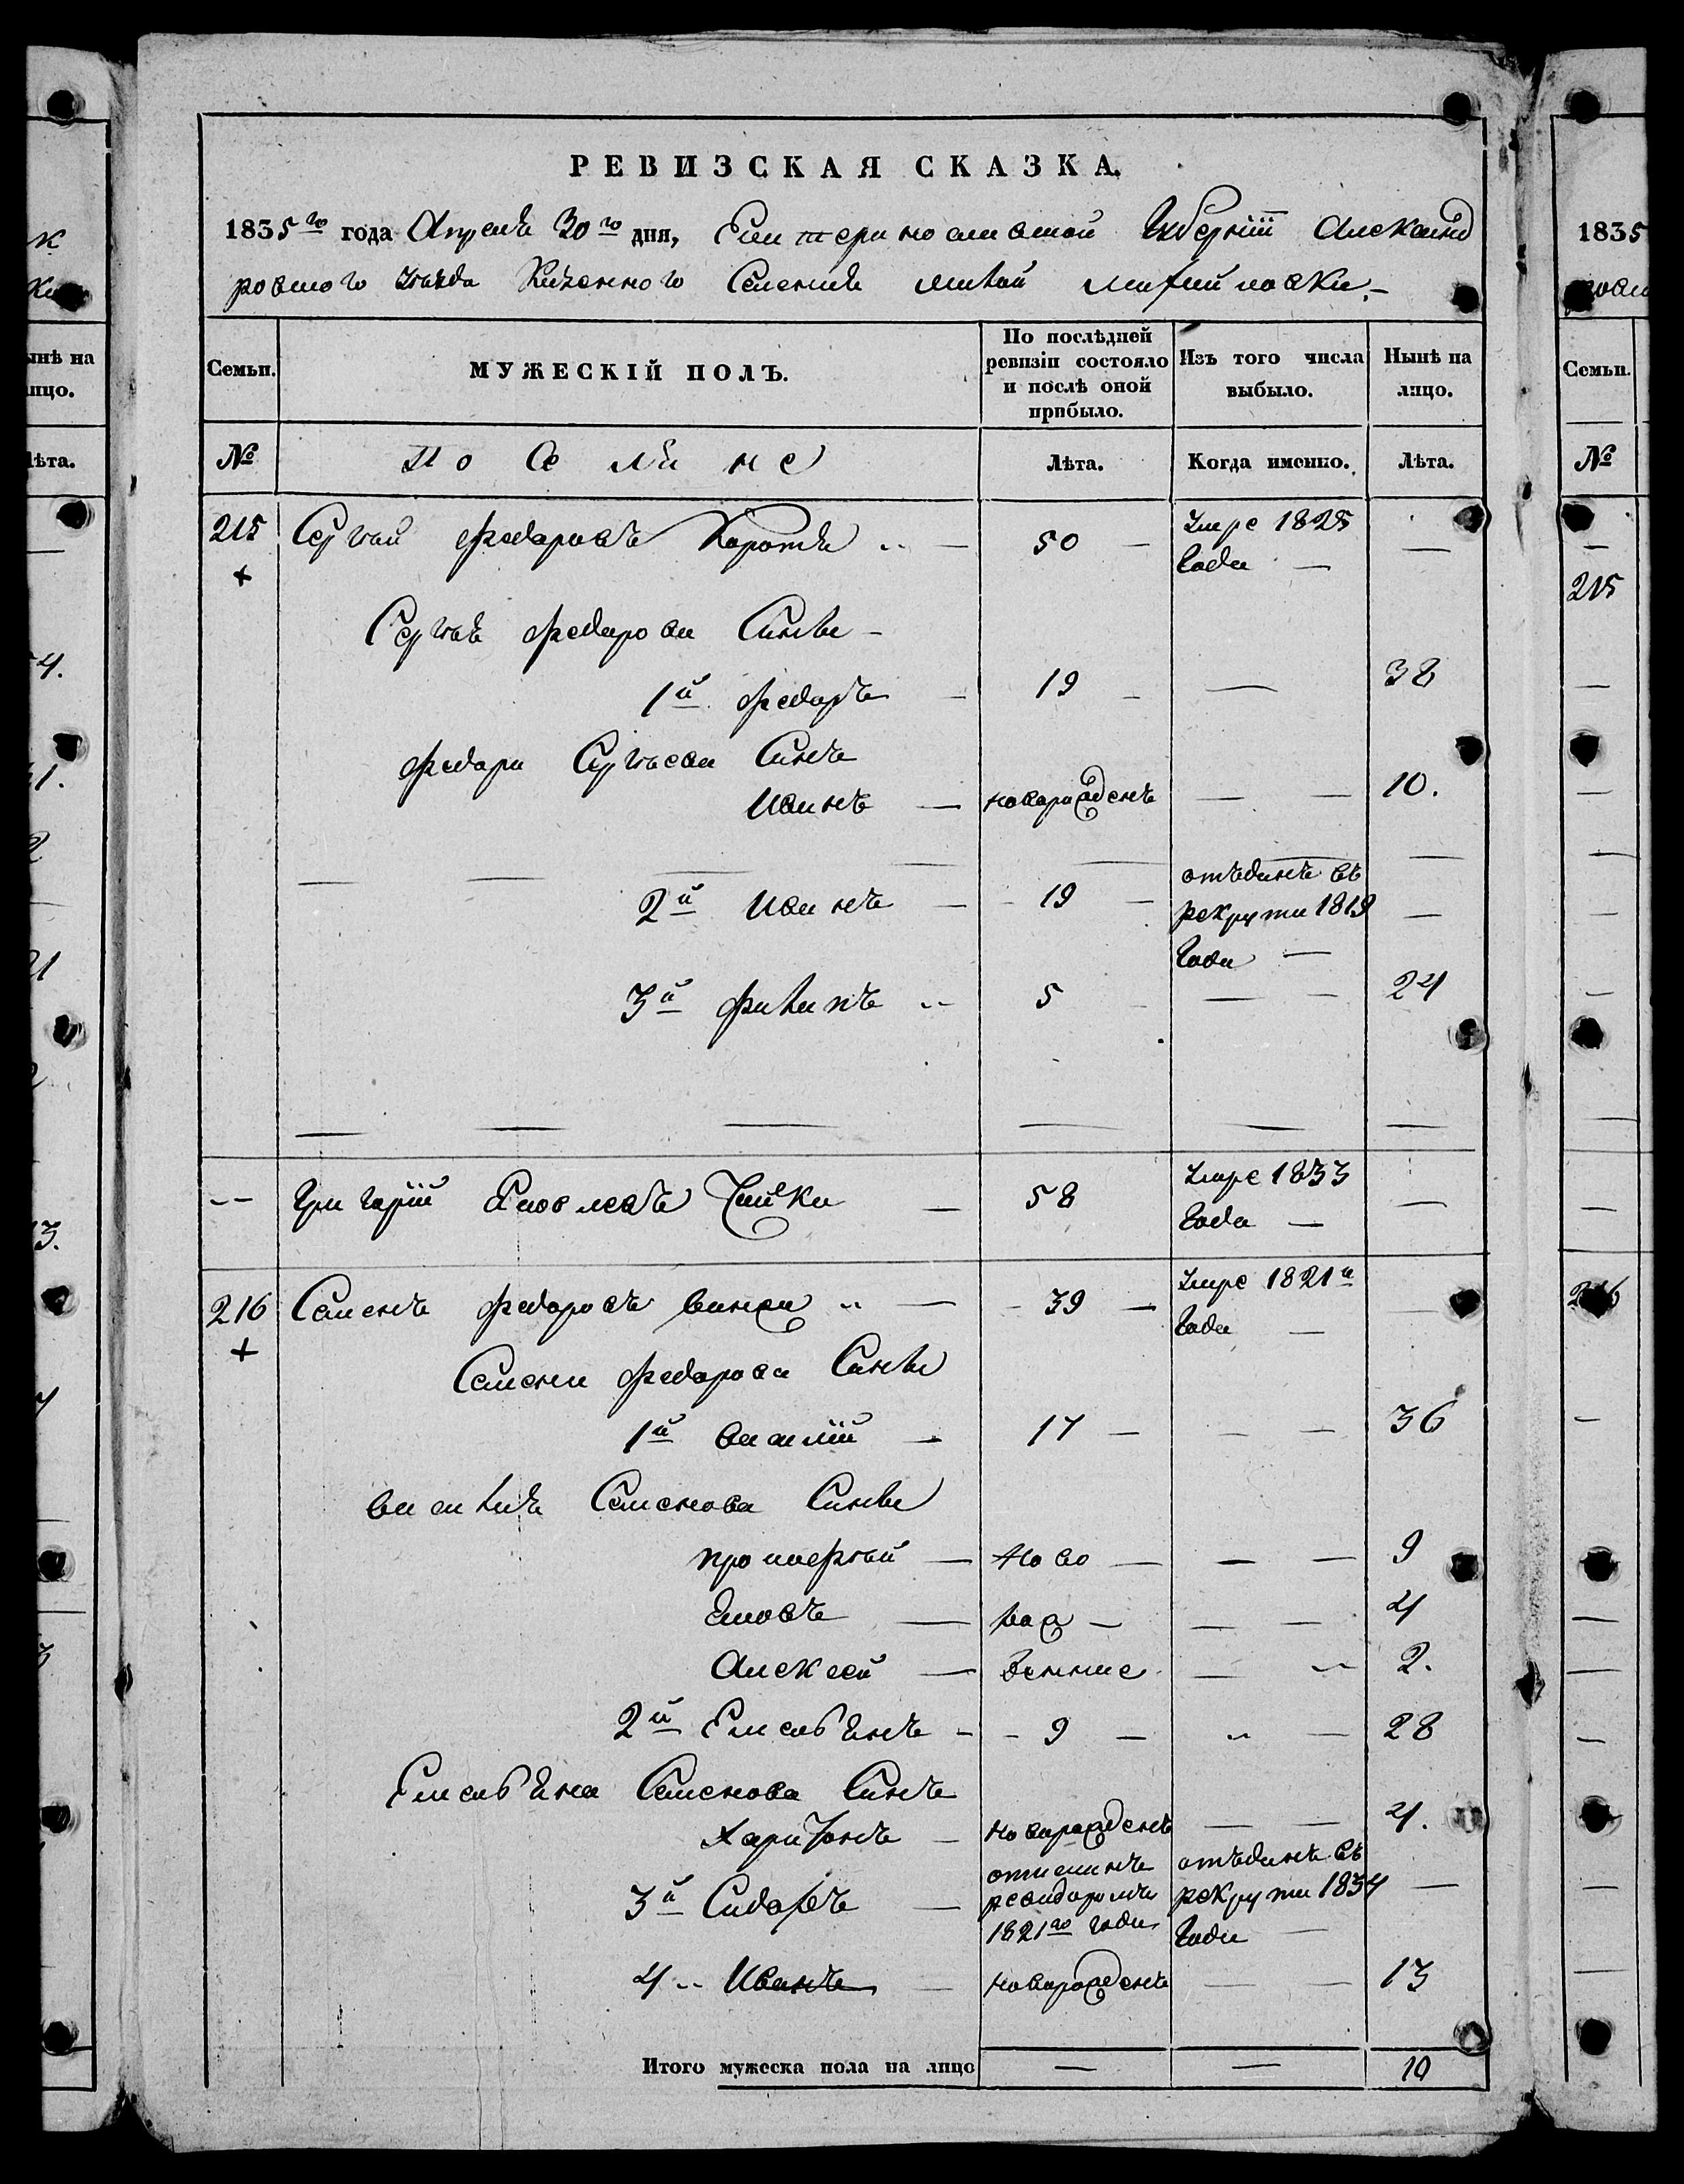 РЕВИЗСКАЯ СКАЗКА.
1835го года Апреля 30го дня, Екатеринославской Губерніи Александ
ровского уезда Казенного Селения малой михайловки.
Семьи.
МУЖЕСКІЙ ПОЛЪ.
По послѣдней ревизіи состояло и послѣ оной прибыло.
Изъ того числа выбыло.
Нынѣ на лицо.
№
Поселяне
Лѣта.
Когда именно.
Лѣта.
215 Сергей Федоровъ 50 умре 1825 года
Сергея Федорова Сынове
1й Федоръ 19 38
Федора Сергеева Сынъ
Иванъ новорожденъ 10.
2й Иванъ 19 отъданъ въ рекруты 1819 года
3й Филипъ 5 24
Григорій Яковлевъ Чайка 58 умре 1833 года
216 Семенъ Федоровъ 39 умре 1821 года
Семена Федорова Сынове
1й василій 17 36
василия Семенова Сынове
прокофей ново 9
Яковъ рож 4
Алексей денные 2.
2й Емельянъ 9 28
Емельяна Семенова Сынъ
Харитонъ новорожденъ 4.
3й Сидоръ 1821го года отъданъ въ рекруты 1834 года
4 Иванъ новорожденъ 13
Итого мужеска пола на лицо 10
1835
Семьи.
№
215
216
ынѣ на
ицо.
ѣта.